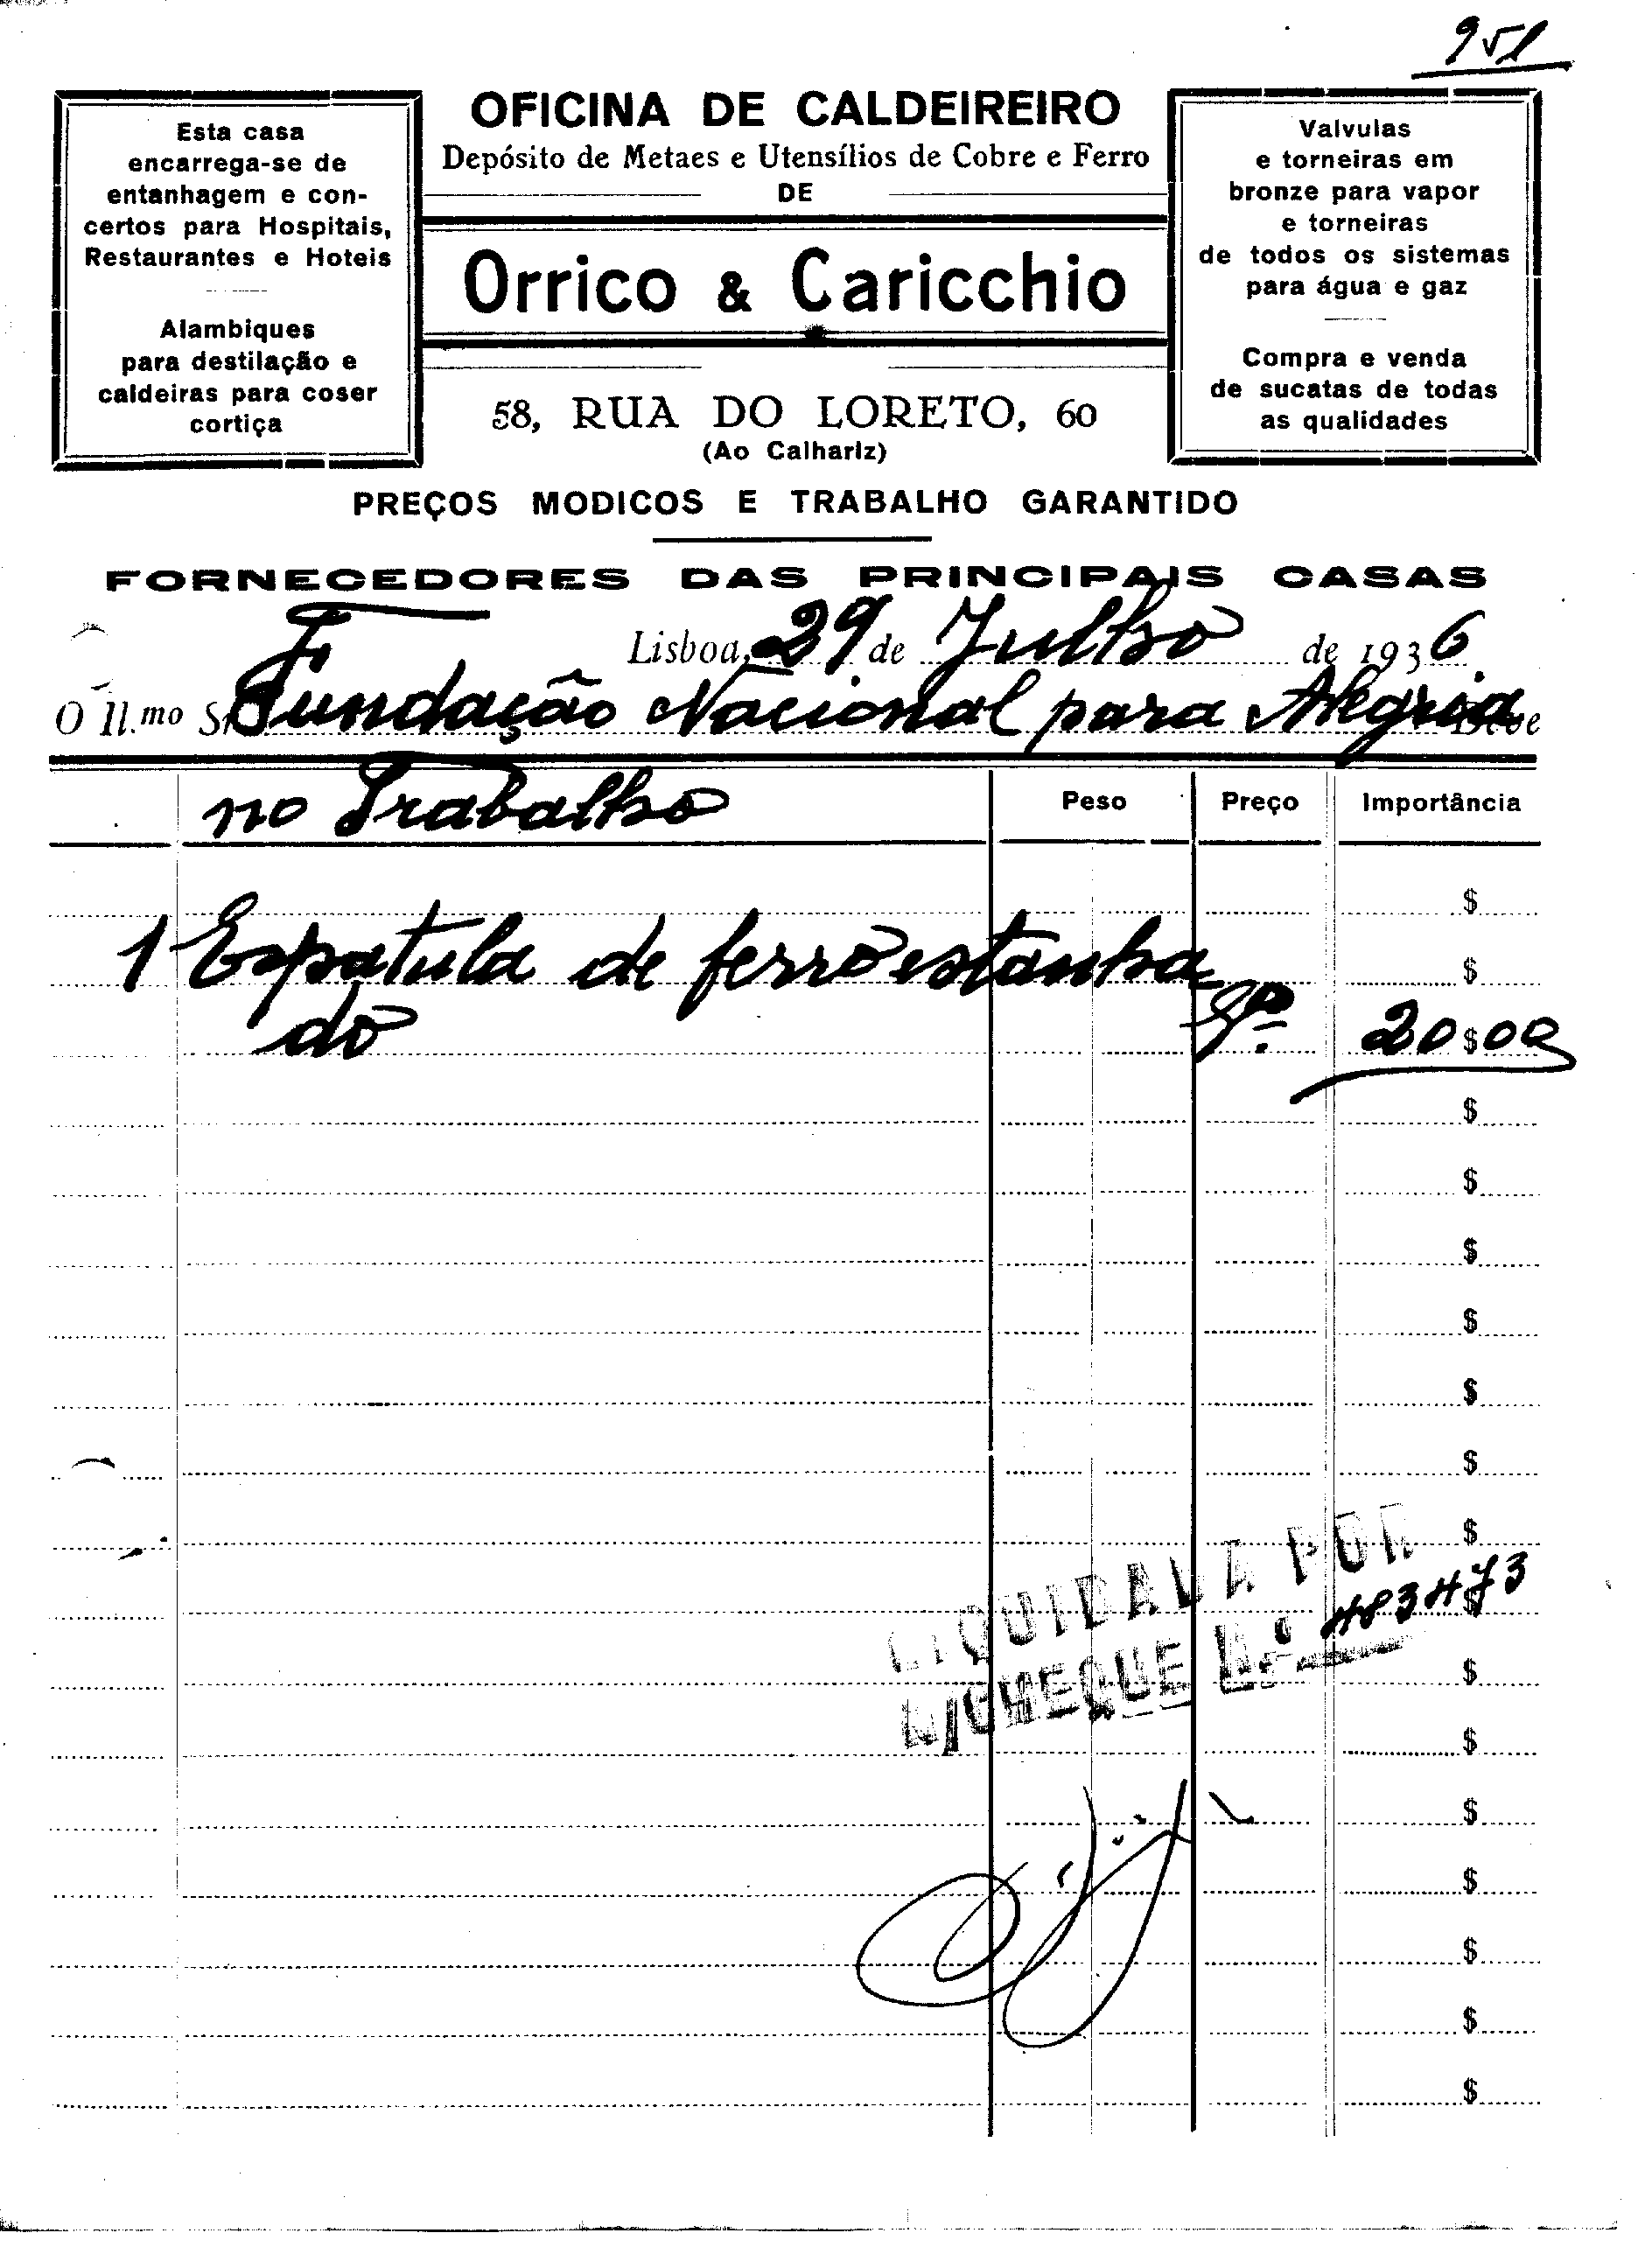 951
Esta casa
encarrega-se de
entanhagem e con-
certos para Hospitais,
Restaurantes e Hoteis
Alambiques
para destilação e
caldeiras para coser
cortiça
OFICINA DE CALDEIREIRO
Depósito de Metaes e Utensílios de Cobre e Ferro
DE
Orrico & Caricchio
58, RUA DO LORETO, 60
(Ao Calhariz)
Valvulas
e torneiras em
bronze para vapor
e torneiras
de todos os sistemas
para água e gaz
Compra e venda
de sucatas de todas
as qualidades
PREÇOS MODICOS E TRABALHO GARANTIDO
FORNECEDORES DAS PRINCIPAIS CASAS
Lisboa, 29 de Julho de 1936
O Il.mo Sr. Fundação Nacional para Alegria Deve
no Trabalho Peso Preço Importância
$
1 Espatula de ferro estanha $
do 20$00
$
$
$
$
$
$
$
LIQUIDADA POR
$
M/CHEQUE N.º 483473
$
$
$
$
$
$
$